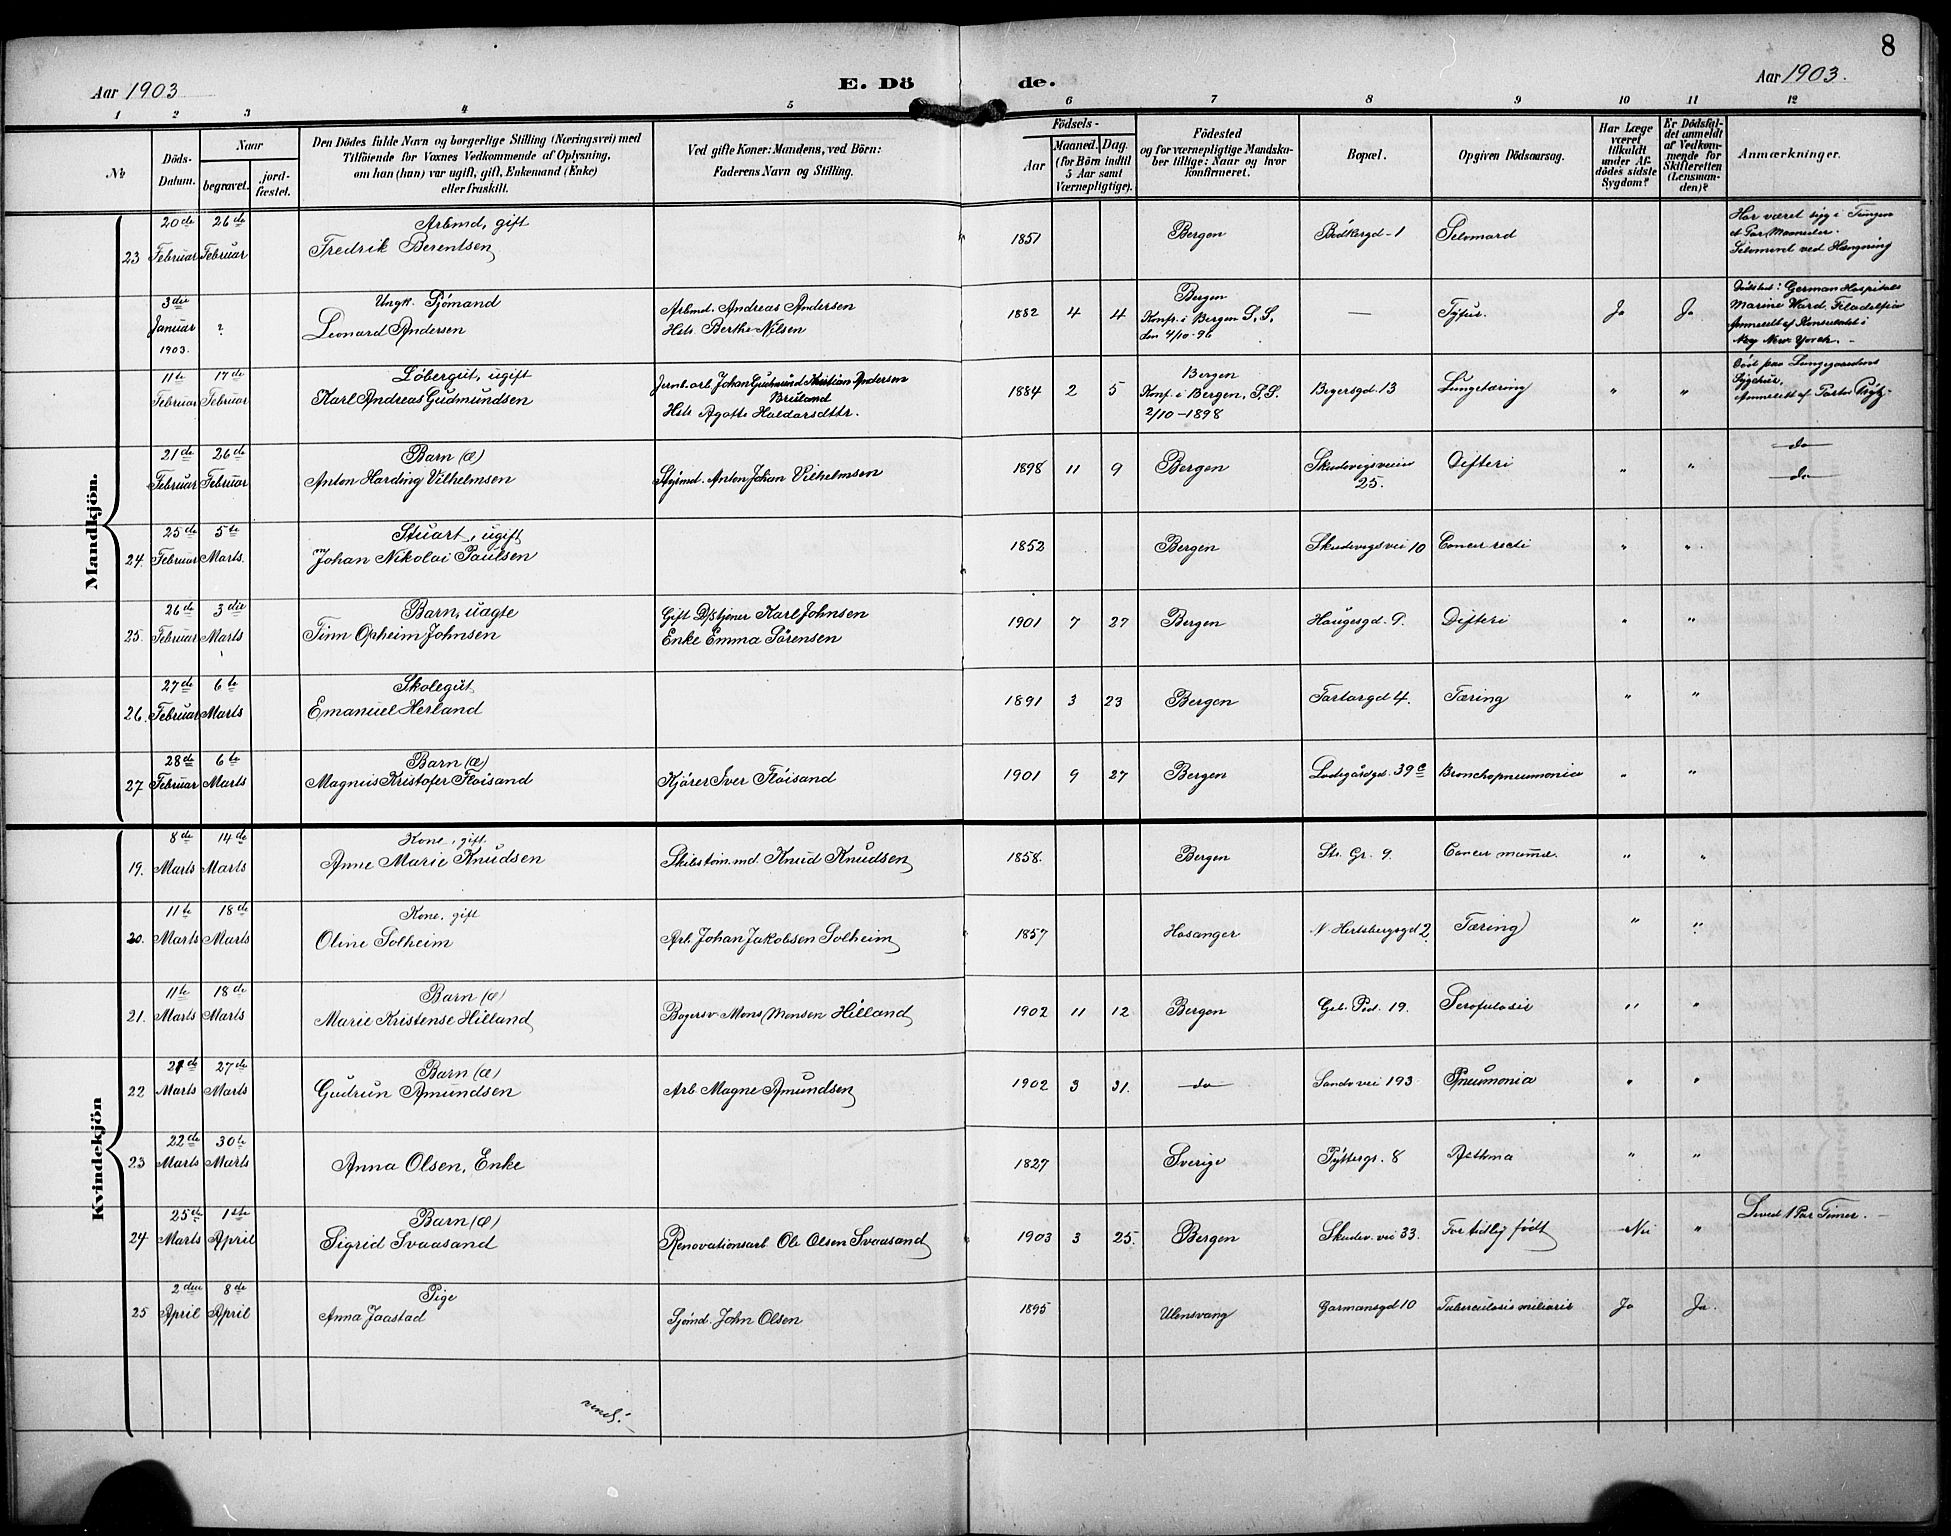 8
Aar 1903
E. Dö
de.
Aar 1903.
1 2 3 4 5 6 7 8 9 10 11 12
No
Döds-Datum.
Naar
begravet.
jord-fæstet.
Den Dödes fulde Navn og borgerlige Stilling (Næringsvei) med
Tilföiende for Voxnes Vedkommende af Oplysning,
om han (hun) var ugift, gift, Enkemand (Enke)
eller fraskilt.
Ved gifte Koner: Mandens, ved Börn:
Faderens Navn og Stilling.
Födsels-
Aar
Maaned. Dag.
(for Börn indtil
5 Aar samt
Værnepligtige).
Födested
og for værnepligtige Mandska-
ber tillige: Naar og hvor
konfirmeret.
Bopæl.
Opgiven Dödsaarsag.
Har Læge
været
tilkaldt
under Af-
dödes sidste
Sygdom?
Er Dödsfal-
det anmeldt
af Vedkom-
mende for
Skifteretten
(Lensman-
den)?
Anmærkninger.
Mandkjön.
23 20de Februar 26de Februar Arbmd, gift
Fredrik Berentsen 1851 Bergen Bødkergd-1 Selvmord
Har været syg i Tungen
et Par Maaneder.
Selvmord ved Hængning
3die Januar 1903. ? Ungk. Sjømand
Leonard Andersen
Arbmd. Andreas Andersen
Hst. Berthe Nilsen
1882 4 4 Bergen
Konf. i Bergen S. S.
den 4/10-96
— Tyfus. Ja Ja
Dödsted: German Hospitals
Marine Ward Filadelfia
Anmeldt af Konsulatet i
New Yorck.
11te Februar 17de Februar Løbergut, ugift
Karl Andreas Gudmundsen
Jernb. arb. Johan Gudmund Kristian Andersen
Bruland
Hst. Agathe Haldorsdttr.
1884 2 5 Bergen
Konf. i Bergen, S. S.
2/10-1898
Bøgersgd. 13 Lungetæring " "
Död paa Lungegaardens
Sygehus,
Anmeldt af Pastor
21de Februar 26de Februar Barn (æ)
Anton Harding Vilhelmsen
Styrmd. Anton Johan Vilhelmsen
1898 11 9 Bergen Skudevigsveien
25. Difteri " "
do
do
24. 25de Februar 5te Marts. Stuart, ugift
Johan Nikolai Paulsen 1852 Bergen Skudevigsvei 10 Cancer recti " "
25. 26de Februar 3die Marts Barn, uægte
Finn Opheim Johnsen
Gift D/Stjener Karl Johnsen
Enke Emma Sørensen
1901 7 27 Bergen Haugesgd. 9. Difteri " "
26. 27de Februar 6te Marts Skolegut
Emanuel Herland 1891 3 23 Bergen Tartargd 4. Tæring " "
27 28de Februar 6te Marts Barn (æ)
Magnus Kristofer Fløisand Kjører Iver Fløisand
1901 9 27 Bergen Ladegårdgd. 39c Bronchopneumonia " "
Kvindekjön
19. 8de Marts 14de Marts Kone, gift.
Anne Marie Knudsen Skibstøm.md Knud Knudsen 1858. Bergen Str. Gr. 9. Cancer mamma. " "
20. 11te Marts 18de Marts Kone, gift
Oline Solheim Arb. Johan Jakobsen Solheim 1857 Hosanger N. Hertsbergsgd 2. Tæring " "
21. 11te Marts 18de Marts Barn (æ)
Marie Kristense Hilland Bogersv. Mons Monsen Hilland
1902 11 12 Bergen 19. Scrofulosis " "
22 21de Marts 27de Marts Barn (æ)
Gudrun Amundsen Arb. Magne Amundsen
1902 3 31. do Sandv. vei 193 Pneumonia " "
23 22de Marts 30te Marts Anna Olsen, Enke 1827 Sverige Pyttergr. 8 Asthma " "
24 25de Marts 1ste April Barn (æ)
Sigrid Svaasand Renovationsarb. Ole Olsen Svaasand
1903 3 25. Bergen Skudev. vei 33. For tidlig født Nei "
Leved 1 Par Timer.
25 2den April 8de April Pige
Anna Jaastad Sjømd. John Olsen 1895 Ulensvang Garmansgd 10 Tuberculosis miliaris Ja Ja.